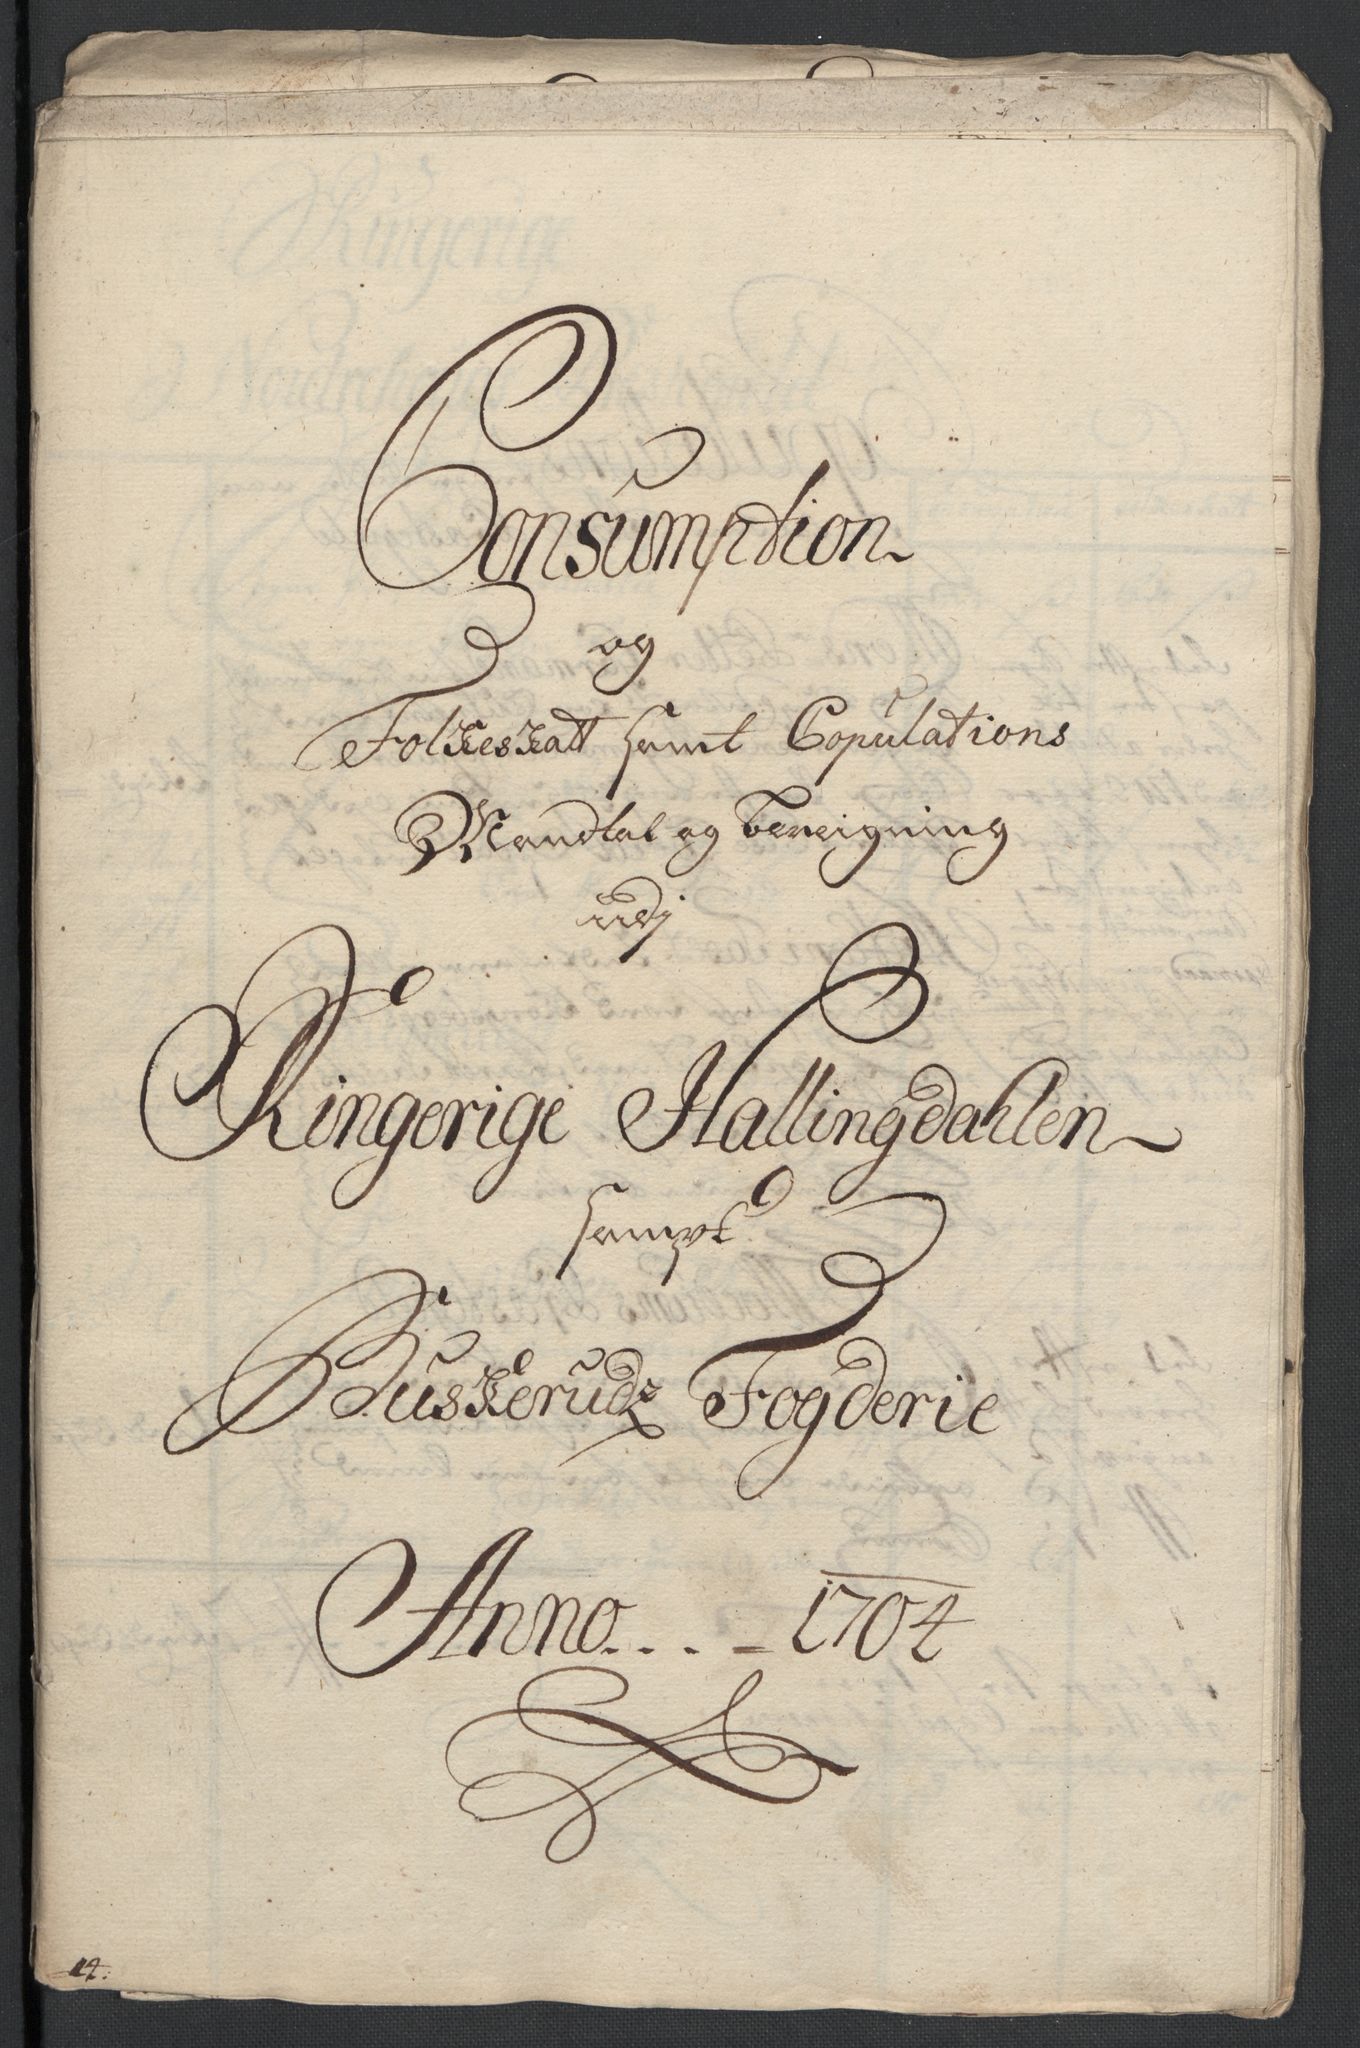 Consumption
og
Folkeskatt samt Copulations
Mandtal og Bereigning
udj
Ringerige Hallingdahlen
sampt
Buskeruds Fogderie
Anno . . . - 1704